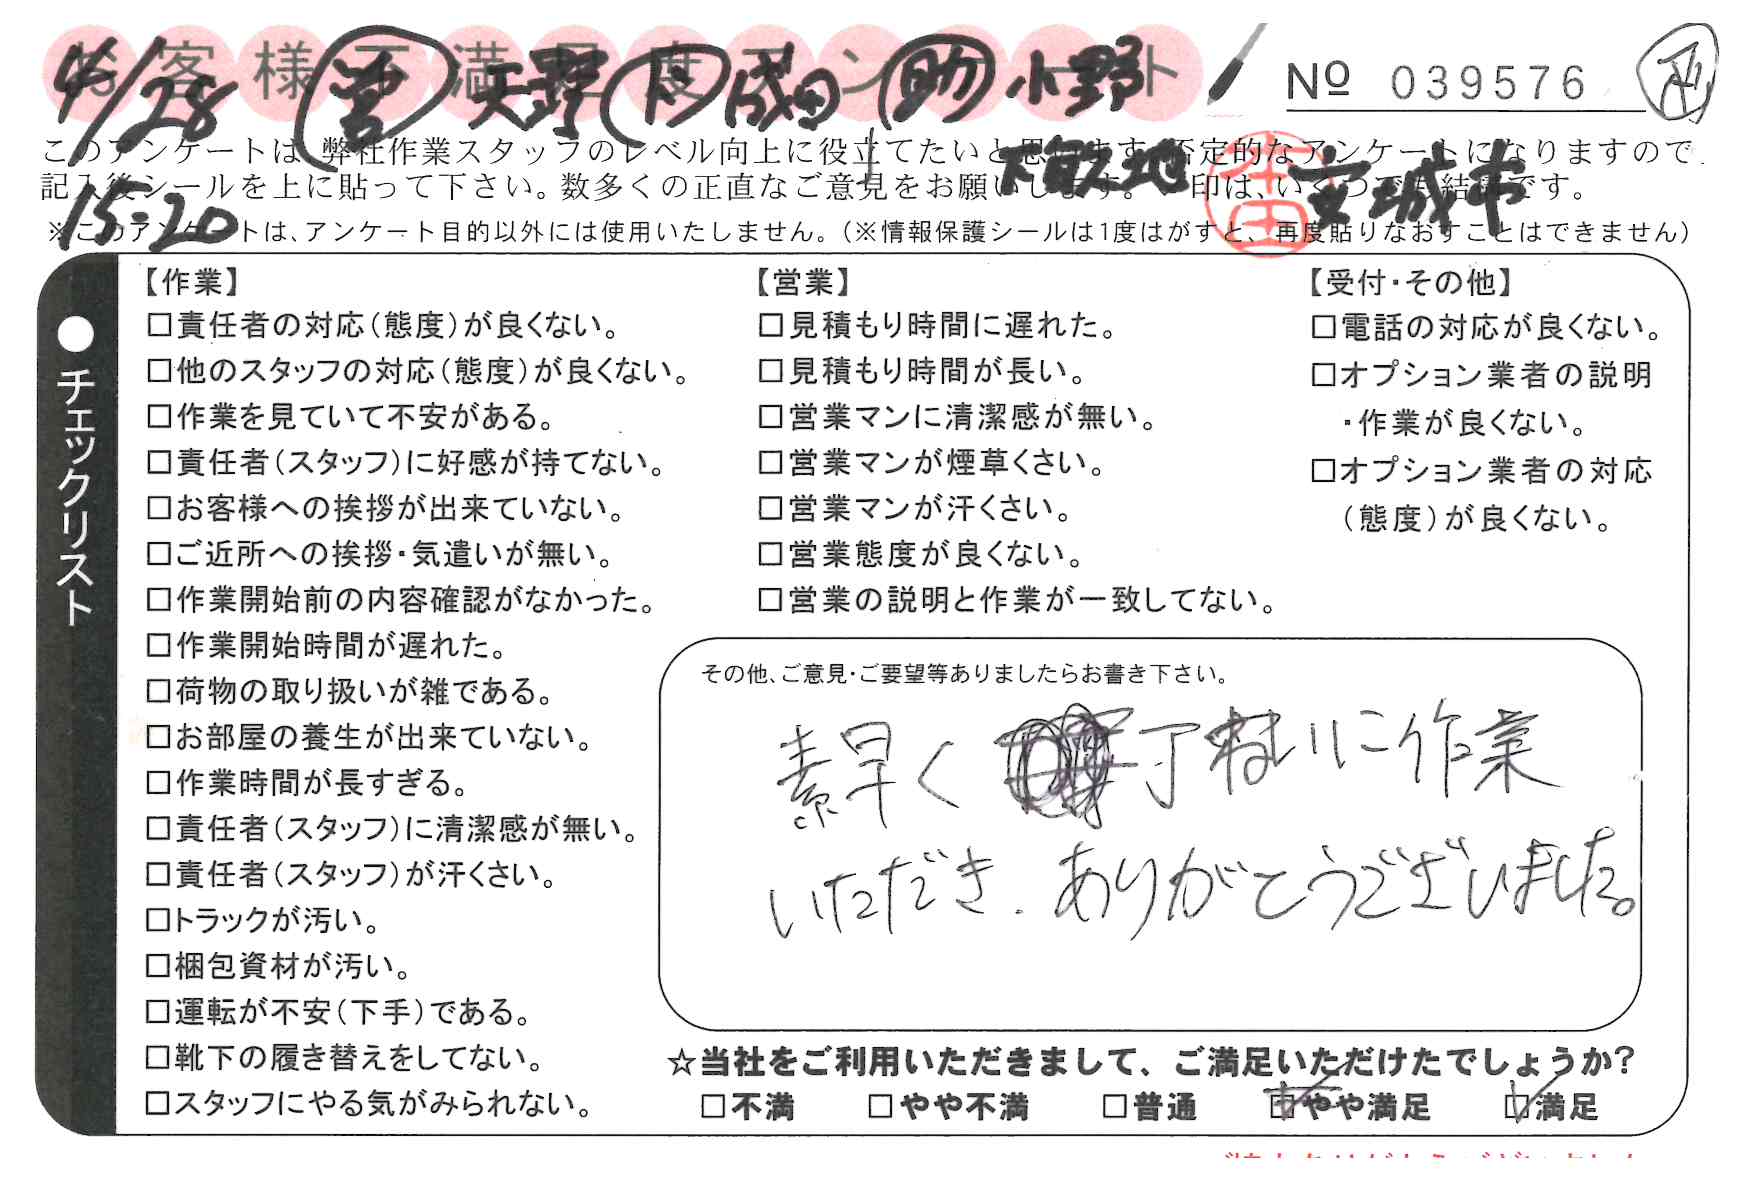 お客様不満足度アンケート
4/28 営 天野 下 成田 助 小野
№ 039576
このアンケートは、弊社作業スタッフのレベル向上に役立てたいと思います。否定的なアンケートになりますので、
記入後シールを上に貼って下さい。数多くの正直なご意見をお願いします。 印は、いくつでも結構です。
15:20 安城市
※このアンケートは、アンケート目的以外には使用いたしません。(※情報保護シールは1度はがすと、再度貼りなおすことはできません)
●チェックリスト
【作業】
□責任者の対応(態度)が良くない。
□他のスタッフの対応(態度)が良くない。
□作業を見ていて不安がある。
□責任者(スタッフ)に好感が持てない。
□お客様への挨拶が出来ていない。
□ご近所への挨拶・気遣いが無い。
□作業開始前の内容確認がなかった。
□作業開始時間が遅れた。
□荷物の取り扱いが雑である。
□お部屋の養生が出来ていない。
□作業時間が長すぎる。
□責任者(スタッフ)に清潔感が無い。
□責任者(スタッフ)が汗くさい。
□トラックが汚い。
□梱包資材が汚い。
□運転が不安(下手)である。
□靴下の履き替えをしてない。
□スタッフにやる気がみられない。
【営業】
□見積もり時間に遅れた。
□見積もり時間が長い。
□営業マンに清潔感が無い。
□営業マンが煙草くさい。
□営業マンが汗くさい。
□営業態度が良くない。
□営業の説明と作業が一致してない。
【受付・その他】
□電話の対応が良くない。
□オプション業者の説明
・作業が良くない。
□オプション業者の対応
(態度)が良くない。
その他、ご意見・ご要望等ありましたらお書き下さい。
素早く 丁ねいに作業
いただき、ありがとうございました。
☆当社をご利用いただきまして、ご満足いただけたでしょうか?
□不満 □やや不満 □普通 □やや満足 □満足